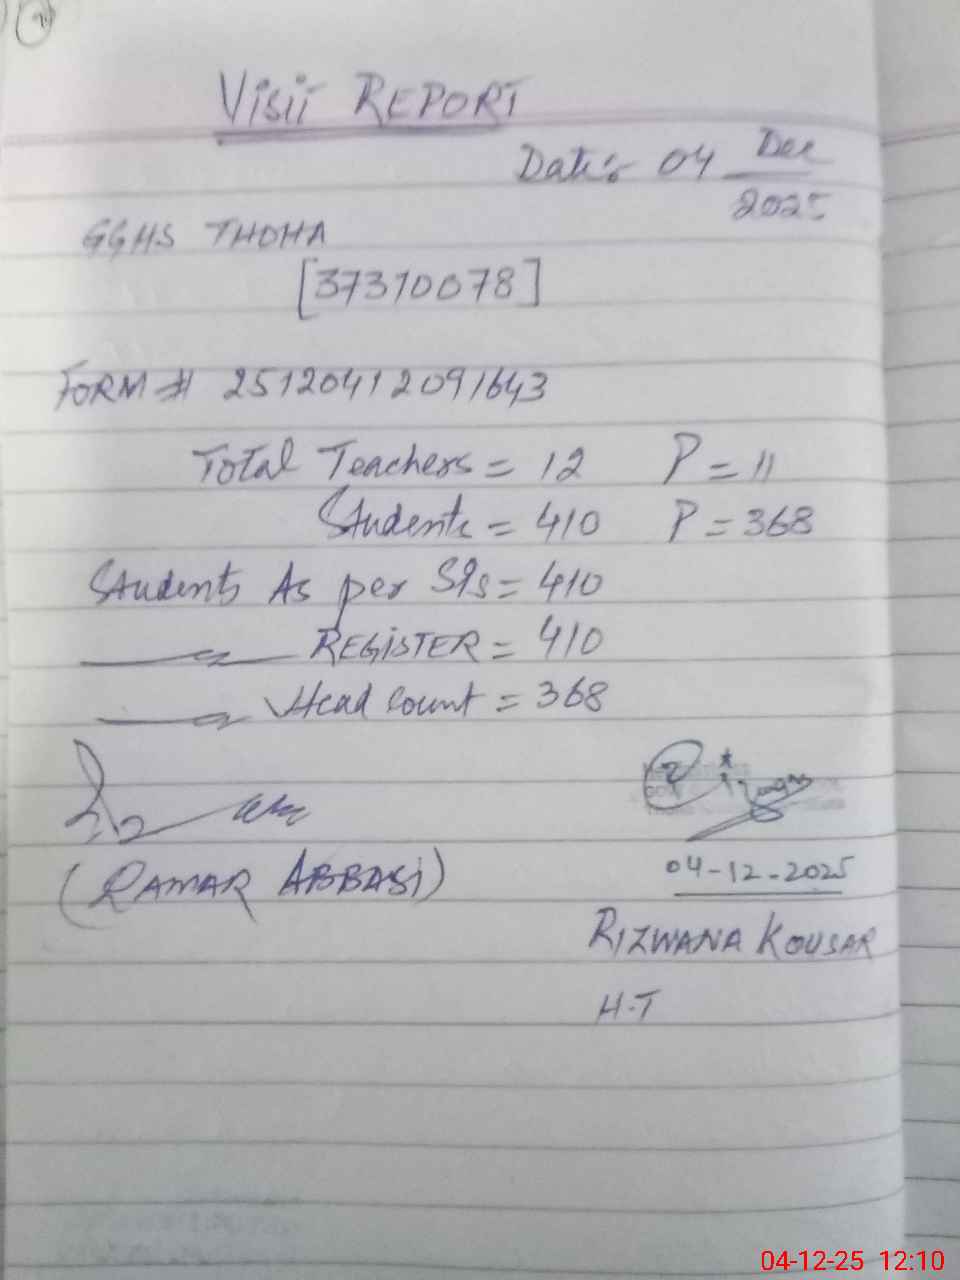 VISIT REPORT
Date: 04 Dec
2025
GGHS THOHA
[37310078]
FORM # 25120412091643
Total Teachers = 12 P = 11
Students = 410 P = 368
Students As per SIS = 410
REGISTER = 410
Head Count = 368
(QAMAR ABBASI)
04-12-2025
RIZWANA KOUSAR
H.T
04-12-25 12:10